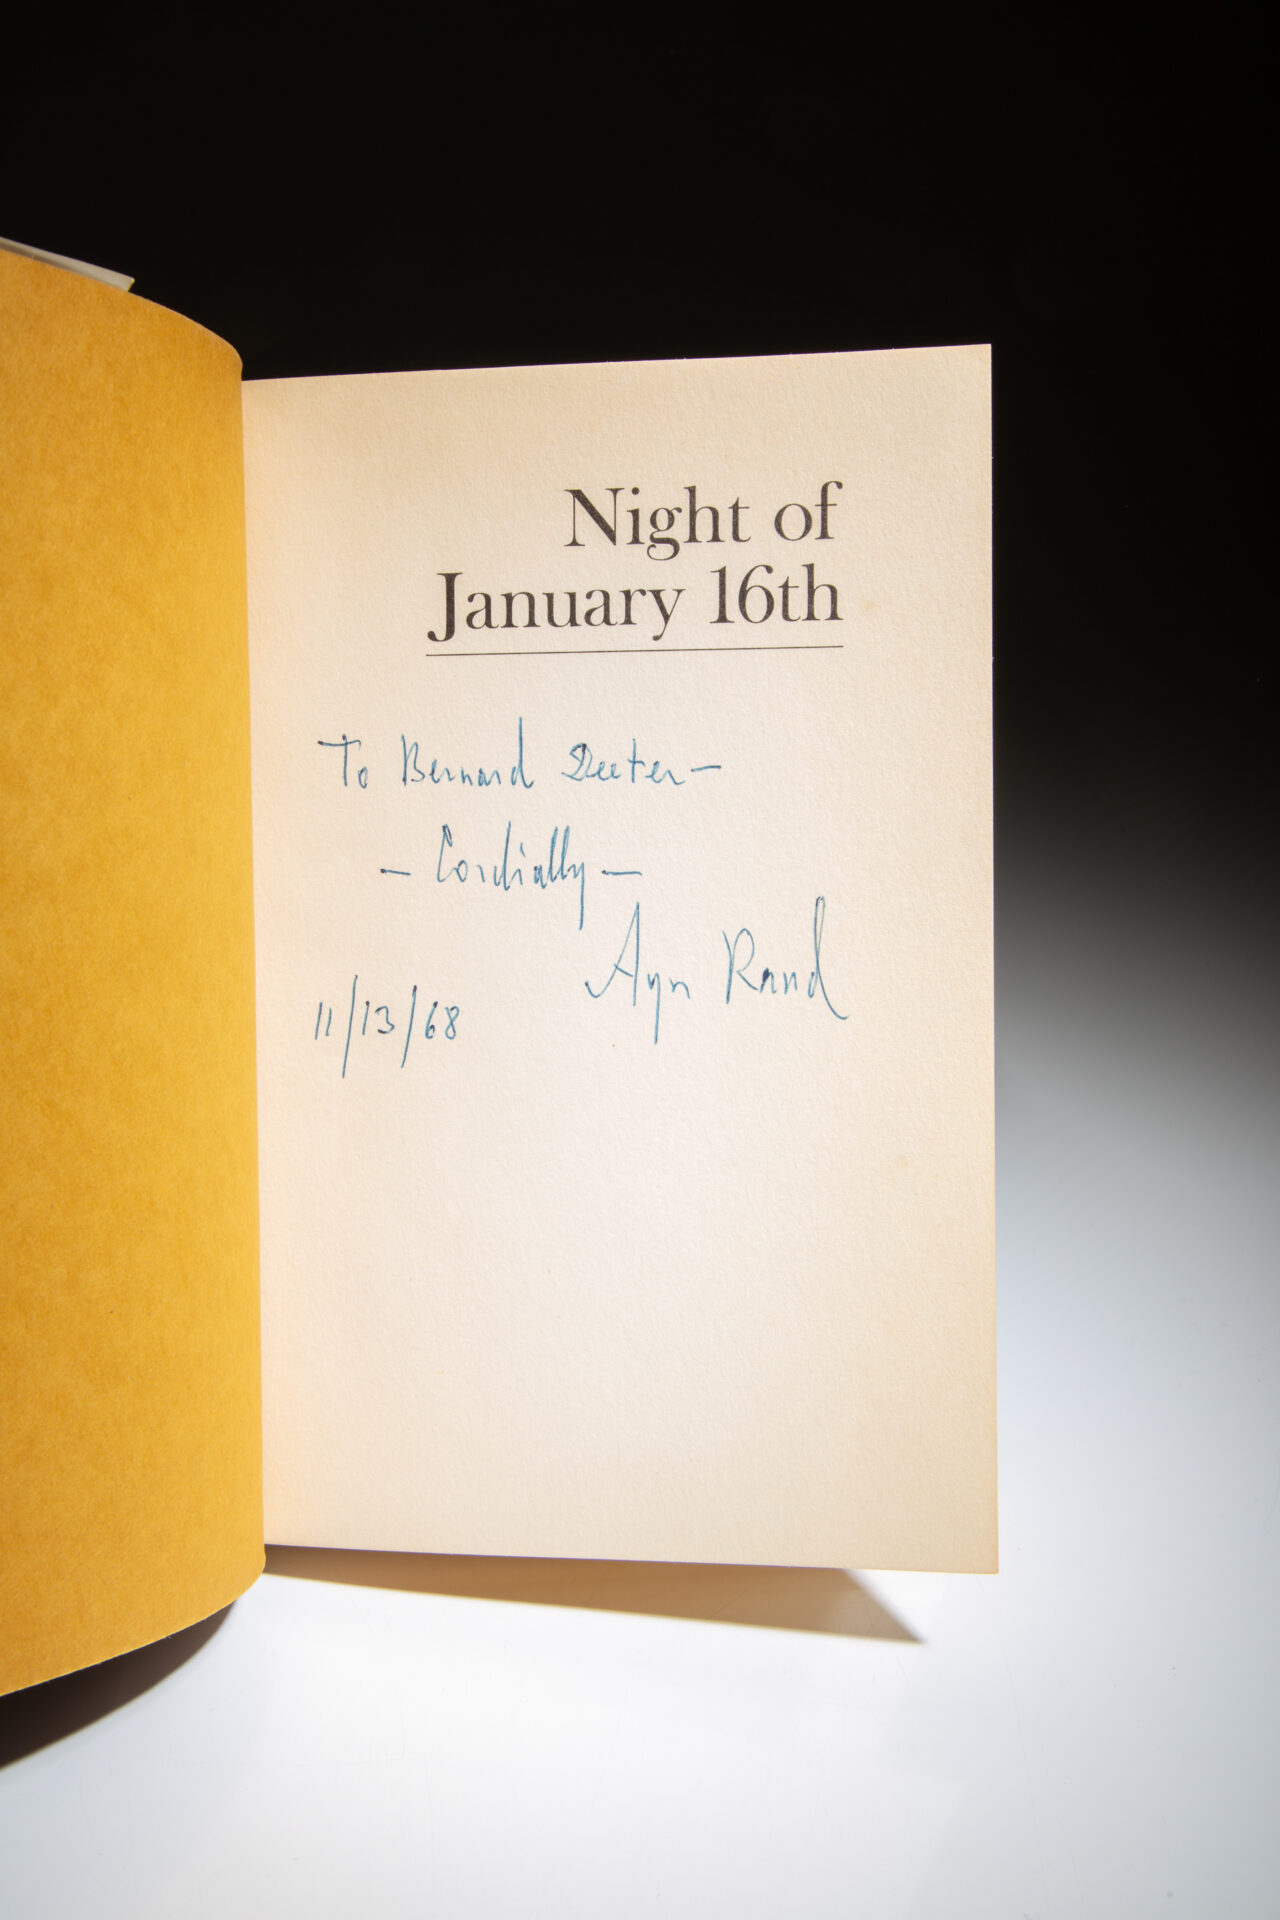 Night of
January 16th
To Bernard Deeter –
– Cordially –
Ayn Rand
11/13/68